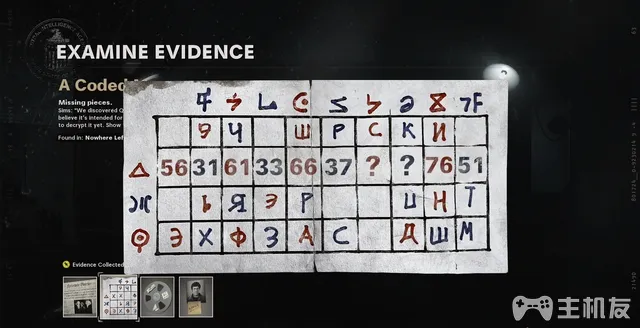 EXAMINE EVIDENCE
A Coded
Missing pieces.
Sims: "We discovered
believe it's intended for
to decrypt it yet. Show
Found In: Nowhere Left
9 Ч Ш Р С К И
56 31 61 33 66 37 ? ? 76 51
Ь Я Э Р Ц Н Т
Э Х Ф З А С Д Ш М
Evidence Collected
主机友